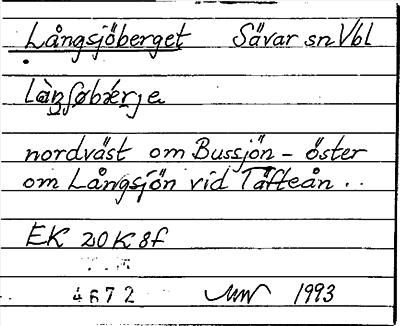 Långsjöberget Sävar sn Vbl
nordväst om Bussjön - öster
om Långsjön vid Täfteån ..
EK 20K8f
4672 1993